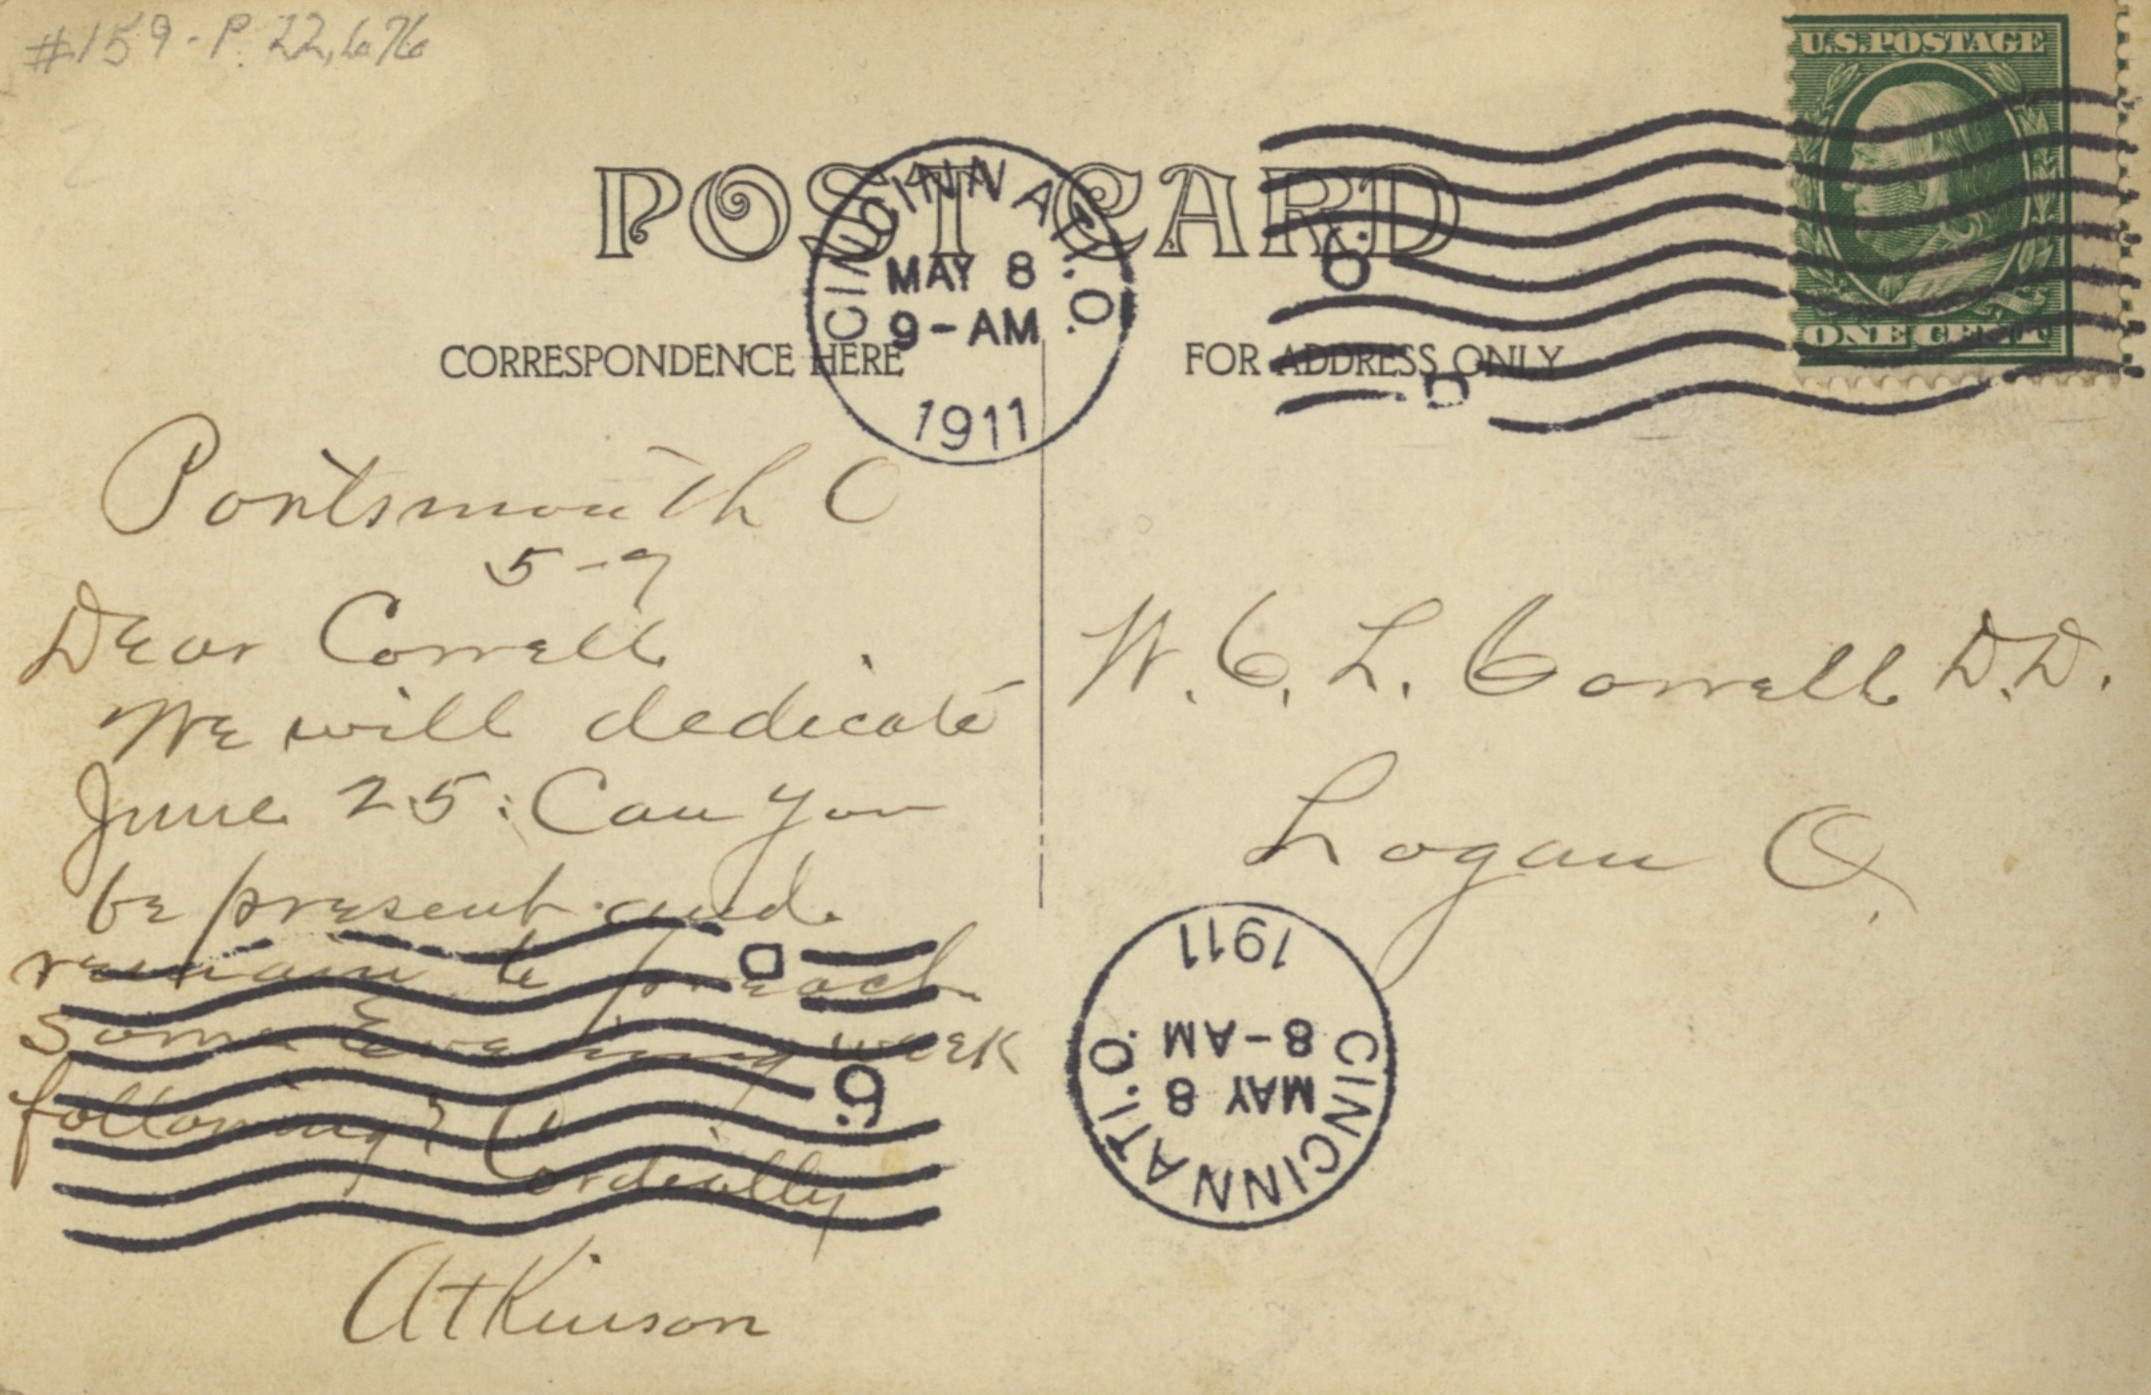 #159-P. 22,676
2
U.S. POSTAGE
ONE CENT
POST CARD
CINCINNATI, O.
MAY 8
9-AM
1911
CORRESPONDENCE HERE
FOR ADDRESS ONLY
Portsmouth O
5-7
Dear Correll
We will dedicate
June 25: Can you
be present and
remain to preach
some Evening week
following? Cordially
Atkinson
W. C. L. Correll D.D.
Logan O.
CINCINNATI, O.
MAY 8
8-AM
1911